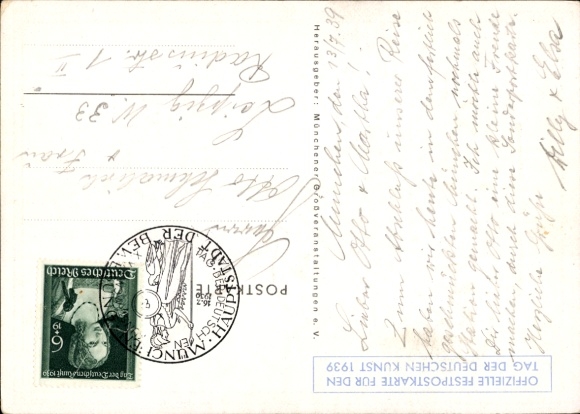 OFFIZIELLE FESTPOSTKARTE FÜR DEN
TAG DER DEUTSCHEN KUNST 1939
München den 13/7.39
Lieber Otto & Martha!
Zum Abschluß unserer Reise
haben wir heute in
München nochmals
Station gemacht. Ich möchte auch
Dir lieber Otto eine kleine Freude
machen durch diese Sonderpostkarte.
Herzliche Grüße
Willy & Elsa
Herausgeber: Münchener Großveranstaltungen e. V.
POSTKARTE
Deutsches Reich
Tag der Deutschen Kunst 1939
6+19
MÜNCHEN · HAUPTSTADT DER BEWEGUNG
TAG DER DEUTSCHEN
16.7.
1939
Herrn
Otto
& Frau
Leipzig W. 33
Radiusstr. 1 II